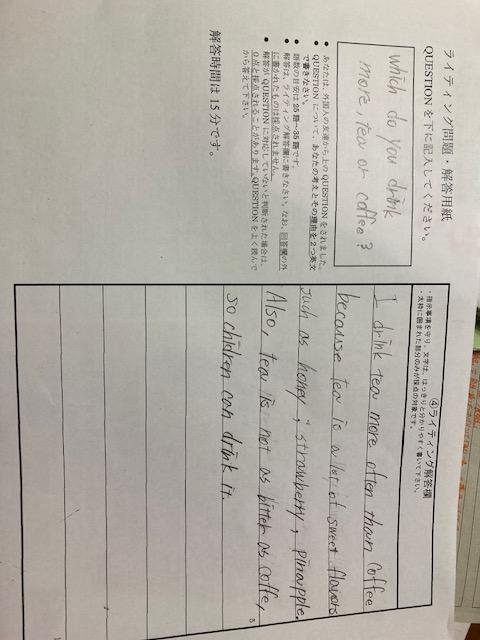 ライティング問題・解答用紙
QUESTION を下に記入してください。
which do you drink
more, tea or coffee?
● あなたは、外国人の友達から上の QUESTION をされました。
● QUESTION について、あなたの考えとその理由を2つ英文
で書きなさい。
● 語数の目安は 25 語~35 語です。
● 解答は、ライティング解答欄に書きなさい。なお、回答欄の外
に書かれたものは採点されません。
● 解答が QUESTION に対応していないと判断された場合は、
0 点と採点されることがあります。QUESTION をよく読んで
から答えて下さい。
解答時間は 15 分です。
④ライティング解答欄
・指示事項を守り、文字は、はっきりと分かりやすく書いて下さい。
・太枠に囲まれた部分のみが採点の対象です。
I drink tea more often than coffee
because tea is a lot of sweet flavors
such as honey, strawberry, pinapple.
Also, tea is not as bitter as coffe,
so children can drink it.